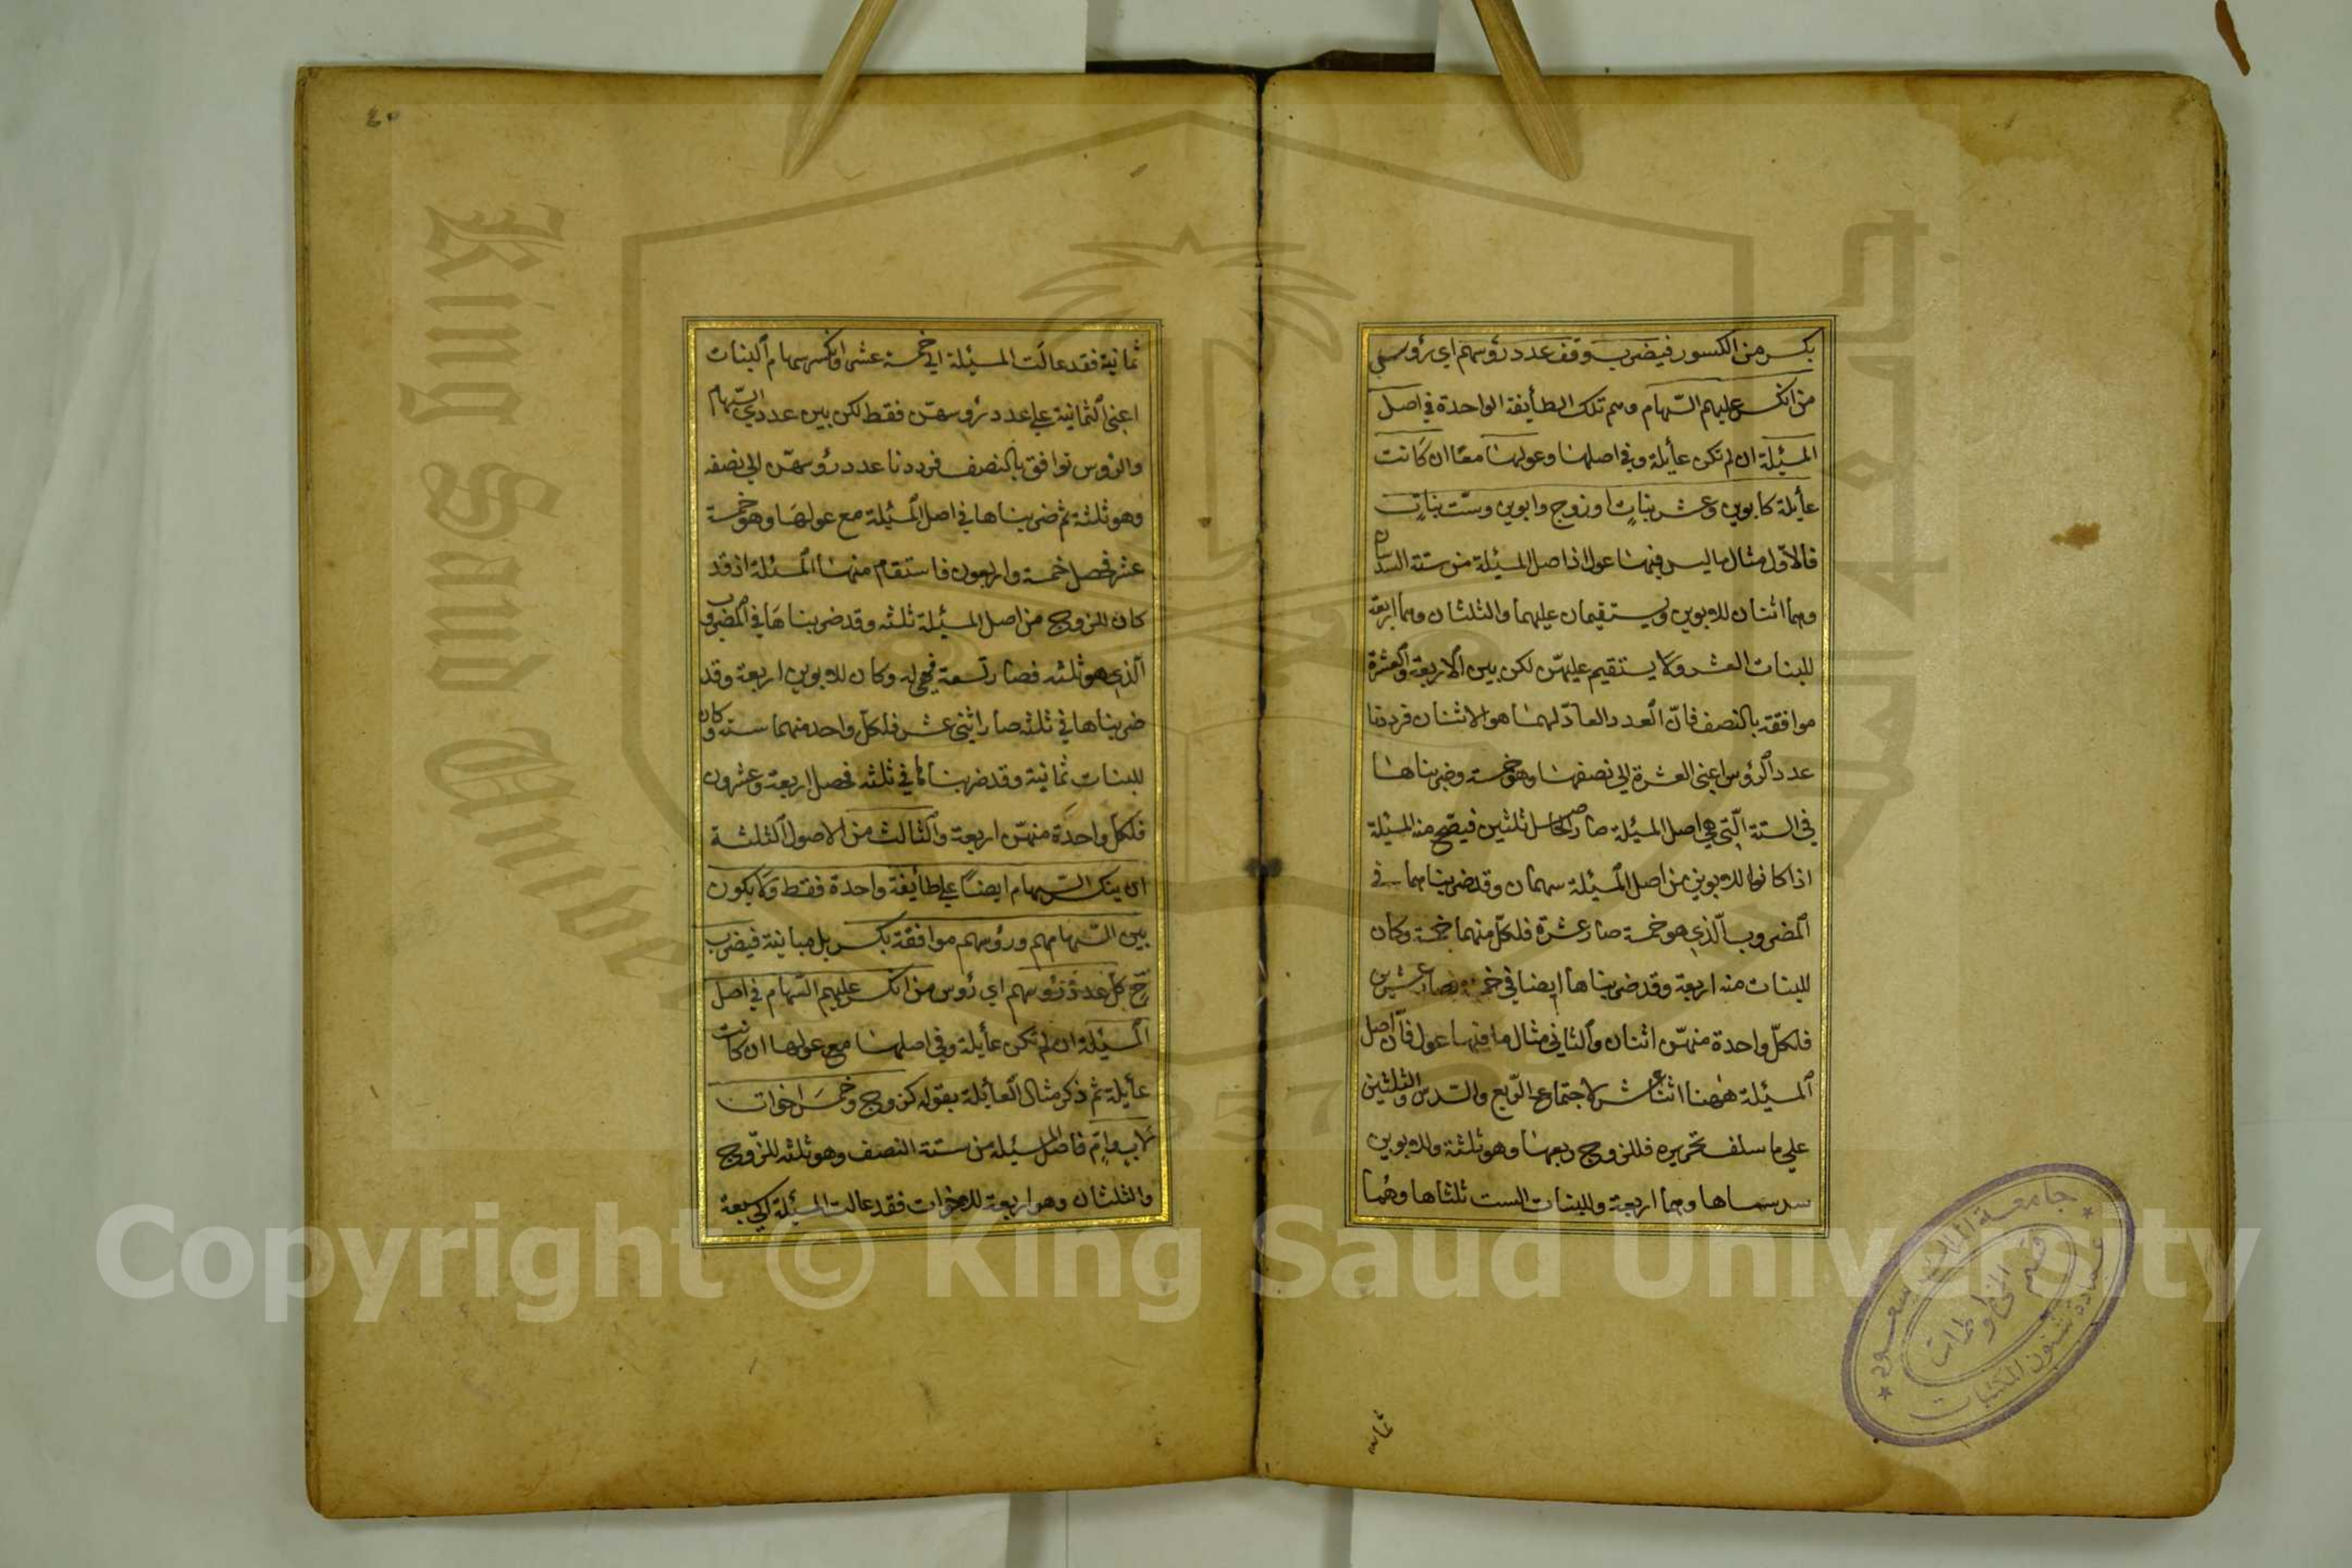 بكسر من الكسور فيضرب وفق عدد رؤسهم اي رؤس
من انكسر عليهم السّهام وهم تلك الطأيفة الواحدة في اصل
المسئلة ان لم تكن عأيلة وفي اصلها وعولها معًا ان كانت
عأيلة كابوين وعشر بناتٍ او زوج وابوين وستّ بناتٍ
فالاوّل مثال ما ليس فيها عول اذ اصل المسئلة من ستة السدسان
وهما اثنان للابوين ويستقيمان عليهما والثلثان وهما اربعة
للبنات العشر ولا يستقيم عليهنّ لكن بين الاربعة والعشرة
موافقة بالنصف فانّ العدد العادّ لهما هو الاثنان فرددنا
عدد الرؤس اعني العشرة الي نصفها وهو خمسة وضربناها
في الستة الّتي هي اصل المسئلة صار الحاصل ثلثين فيصّح منه المسئلة
اذا كانوا للابوين من اصل المسئلة سهمان وقد ضربناهما في
المضروب الّذي هو خمسة صار عشرة فلكلّ منهما خمسة وكان
للبنات منه اربعة وقد ضربناها ايضا في خمسة فصار عشرين
فلكلّ واحدة منهنّ اثنان والثاني مثال ما فيها عول فانّ اصل
المسئلة ههنا اثنا عشر لاجتماع الرّبع والسّدس والثلثين
علي ما سلف تحريره فللزوج ربعها وهو ثلثة وللابوين
سدسماها وهما اربعة وللبنات الست ثلثاها وهُما
ثمانية
٤٠
ثمانية فقد عالَت المسئلة الي خمسة عشر وانكسر سهام البنات
اعني الثمانية علي عدد رؤسهنّ فقط لكن بين عددي السّهام
والرؤس توافق بالنصف فرددنا عدد رؤسهنّ الي نصفه
وهو ثلثة ثم ضربناها في اصل المسئلة مع عولها وهو خمسة
عشر فحصل خمسة واربعون فاستقام منها المسئلة اذ قد
كان للزوج من اصل المسئلة ثلثه وقد ضربناها في المضروب
الّذي هو ثلثه فصار تسعة فهي له وكان للابوين اربعة وقد
ضربناها في ثلثه صار اثني عشر فلكلّ واحد منهما ستة وكان
للبنات ثمانية وقد ضربناها في ثلثه فحصل اربعة وعشرون
فلكل واحدة منهنّ اربعة والثالث من الاصول الثلثة
ان ينكسر السّهام ايضًا علي طائيفة واحدة فقط ولا يكون
بين سهامهم ورؤسهم موافقة بكسر بل مباينة فيضرب
ح كل عدد رؤسهم اي رؤس من انكسر عليهم السّهام في اصل
المسئلة ان لم تكن عأيلة وفي اصلها مع عولها ان كانت
عأيلة ثم ذكر مثال العأيلة بقوله كزوج وخمسَ اخوات
لابٍ وامٍّ فاصل المسئلة من ستة النصف وهو ثلثه للزّوج
والثلثان وهو اربعة للاخوات فقد عالت المسئلة الي سبعة
جامعة الملك سعود
عمادة شئون المكتبات
قسم المخطوطات
King Saud University
Copyright © King Saud University